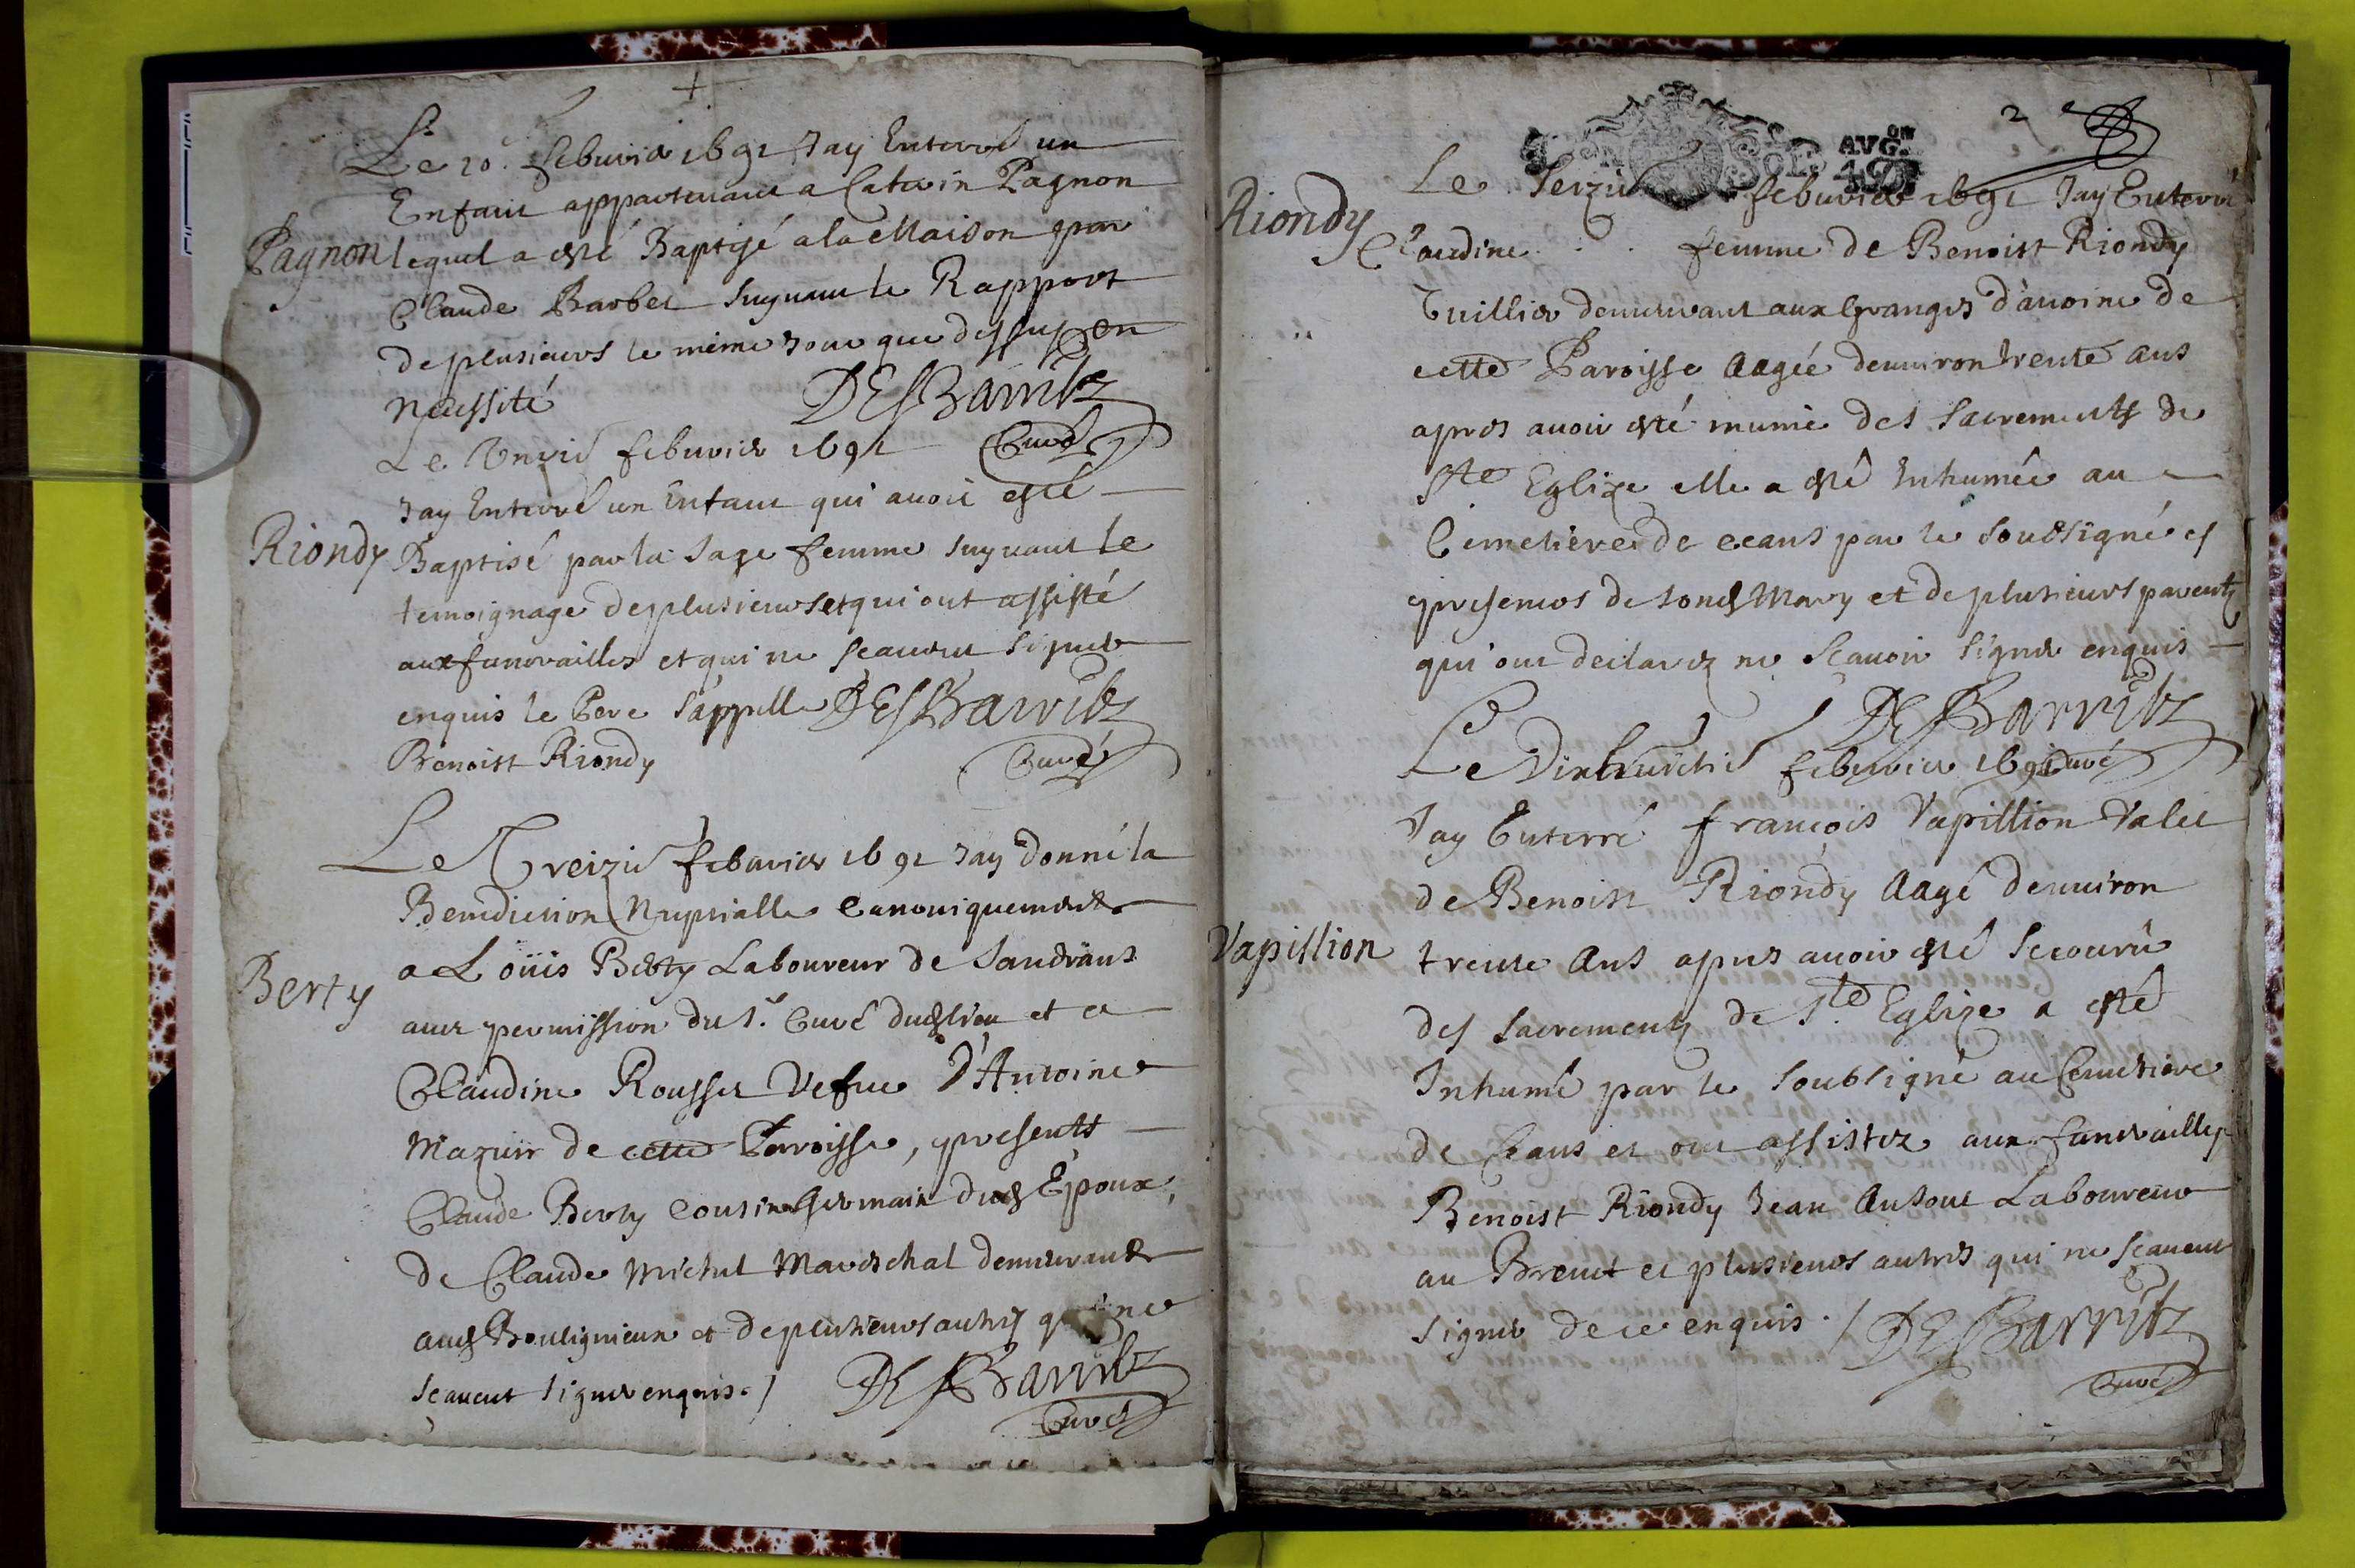 Le 10e. febuvier 1691 Jay Enterré un
Enfant appartenant a Caterin Pagnon
Pagnon lequel a esté Baptisé a la Maison par
Claude Barbet suyuant le Rapport
de plusieurs le méme jour que dessus en
necessité DESBarritz
Curé
Le Unzie febuvier 1691
Jay Enterré un Enfant qui auoit esté
Riondy Baptisé par la Sage femme suyuant le
temoignage de plusieurs et qui ont assisté
aux funerailles et qui ne scauent signer
enquis le Pere s'appelle DESBarritz
Benoist Riondy Curé
Le Treizie febuvier 1691 Jay donné la
Benediction Nuptialle Canoniquement
Berty a Loüis Berty Laboureur de Sandrans
auec permission du Sr. Curé dud lieu et a
Claudine Rousset Vefue D'Antoine
Mazuir de cette Parroisse, presents
Claude Berty Cousin Germain dud Epoux,
de Claude Michel Mareschal demeurant
aud Bouligneux et de plusieurs autres qui ne
scauent signer enquis. / DESBarritz
Curé
2
AVG.on
Riondy Le Seizie febuvier 1691 Jay Enterré
Claudine . . femme de Benoist Riondy
Tuillier demeurant aux Granges d'auoine de
cette Paroisse Aagée denuiron trente ans
apres auoir esté munie des Sacrements de
Ste Eglize elle a esté Inhumée au
Cimetiere de ceans par le soubsigné es
presences de sond Mary et de plusieurs parents
qui ont declarez ne scauoir signer enquis
DESBarritz
Curé
Le Vinthuictie febuvier 1691
Jay Enterré françois Vapillion Valet
de Benoist Riondy Aagé denuiron
Vapillion trente Ans apres auoir esté secouru
des sacrements de Ste Eglize a esté
Inhumé par le soubsigné au Cemetiere
de Ceans et ont assistez aux funerailles
Benoist Riondy Jean Laboureur
au et plusieurs autres qui ne scauent
signer de ce enquis. / DESBarritz
Curé